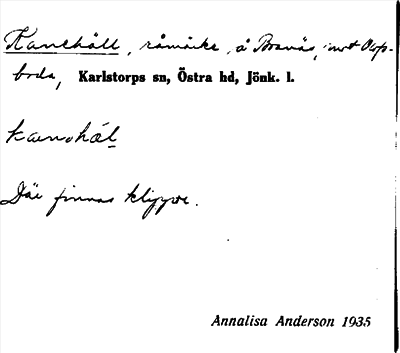 Kanehäll, råmärke, å Bravås, mot Olofs-
boda, Karlstorps sn, Östra hd, Jönk. l.
Där finnas klippor.
Annalisa Anderson 1935